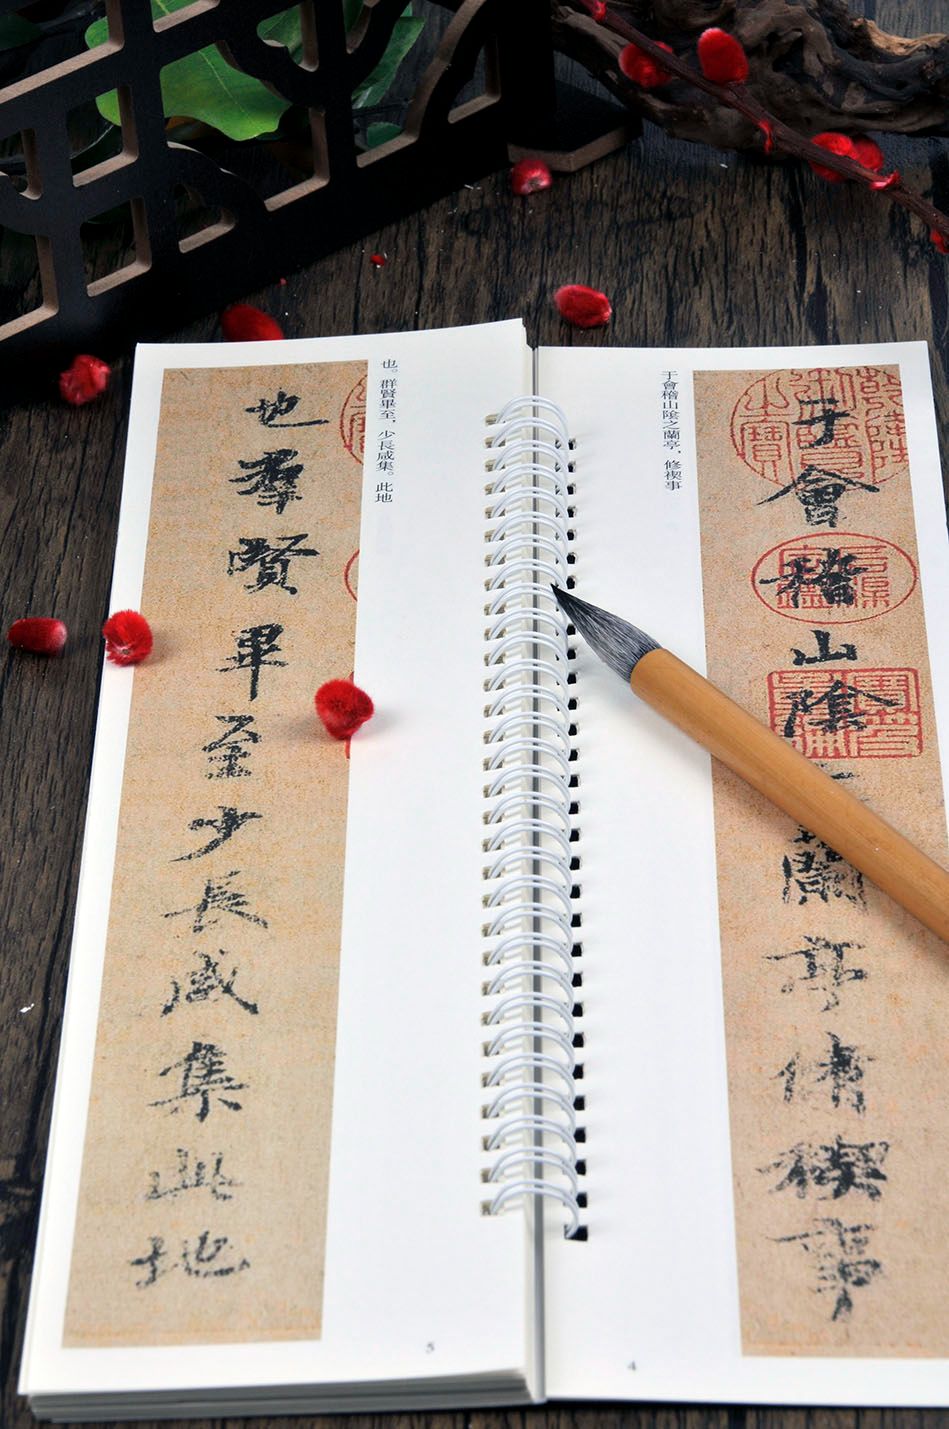 于會稽山陰之蘭亭，修禊事
于會稽山陰之蘭亭修禊事
4
也。群賢畢至，少長咸集。此地
也羣賢畢至少長咸集此地
5